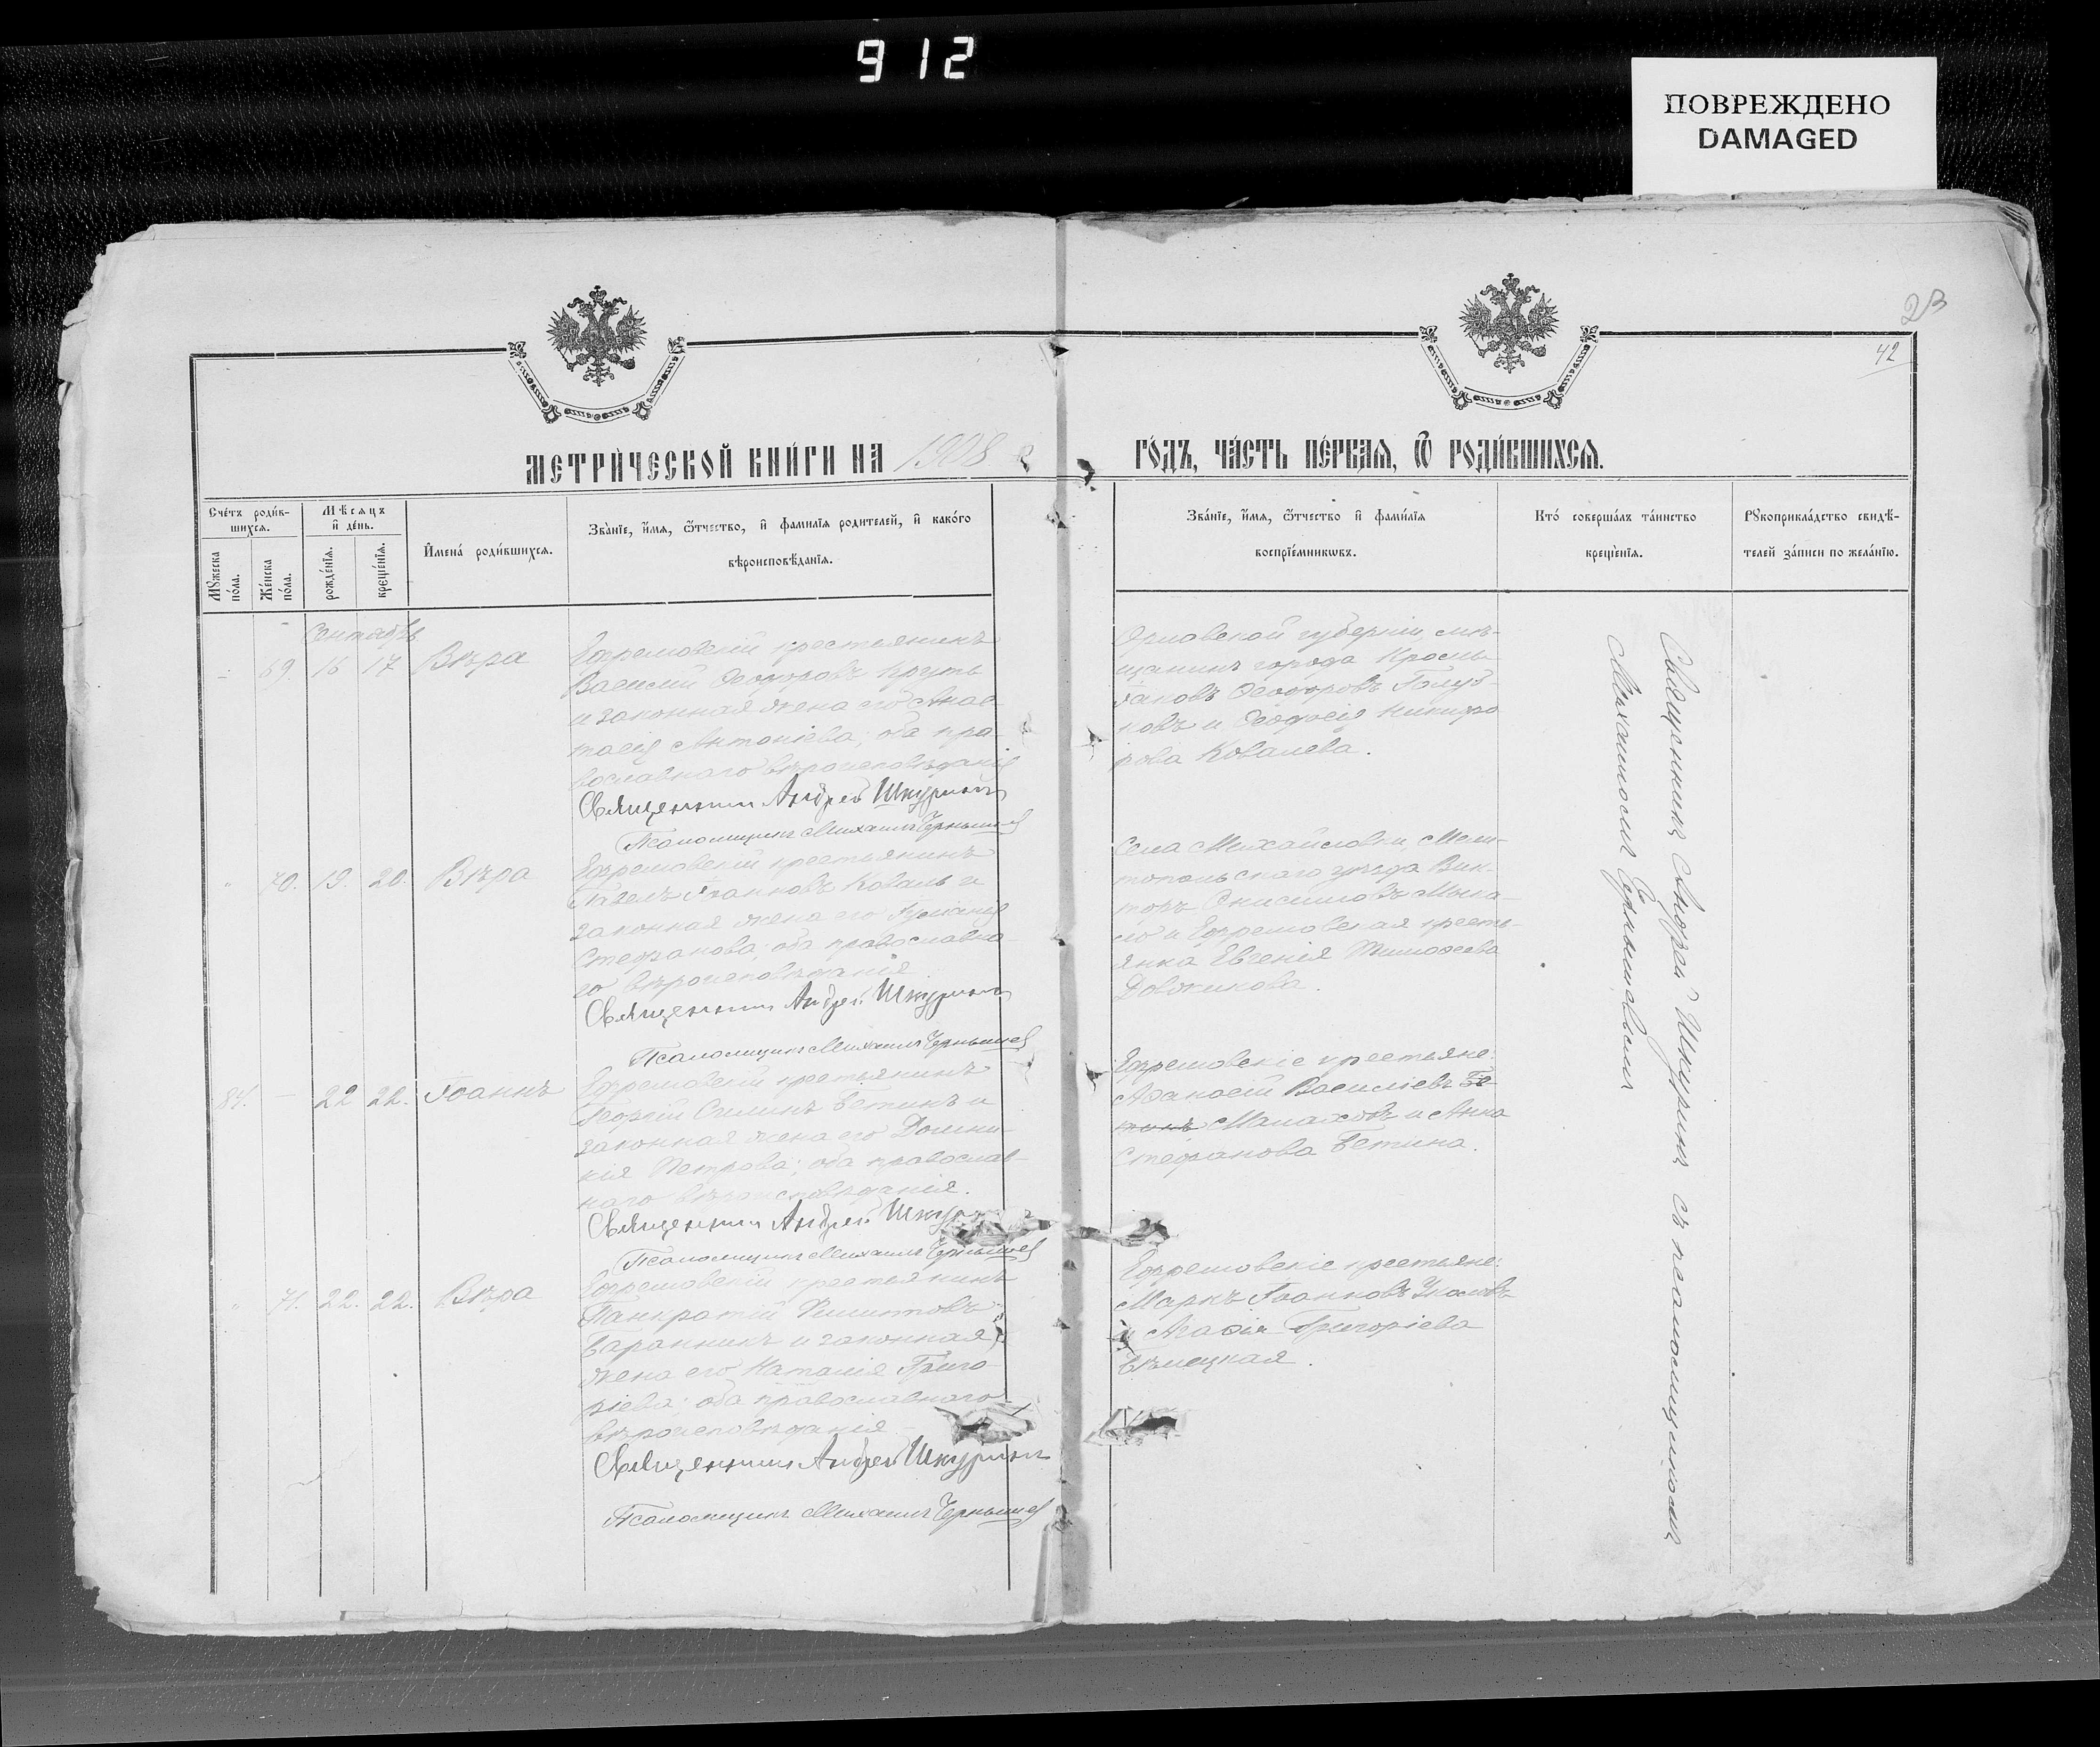 912
ПОВРЕЖДЕНО
DAMAGED
23
42
МЕТРИ́ЧЕСКОЙ КНИ́ГИ НА 1908 г
ГО́ДЪ, ЧА́СТЬ ПЕ́РВАЯ, Ѿ РОДИ́ВШИХСЯ.
Сче́тъ роди́в-
шихся.
Мѣ́сяцъ
и҆ де́нь.
Мꙋжеска
по́ла.
Же́нска
по́ла.
рожде́нїя.
креще́нїя.
И҆мена̀ роди́вшихся.
Зва́нїе, и҆́мя, ѻ҆́тчество, и҆ фами́лїя родителей, и҆ како́го
вѣроисповѣ́данїя.
Зва́нїе, и҆́мя, ѻ҆́тчество и҆ фами́лїя
воспрїе́мникѡвъ.
Кто́ соверша́лъ та́инство
креще́нїя.
Рꙋкоприкла́дство свидѣ́-
телей за́писи по жела́нїю.
Сентябрь
69. 16 17 Вѣра
Ефремовскій крестьянинъ
Василій Ѳеодоровъ Круть
и законная жена его Анас-
тасія Антоніева; оба пра-
вославнаго вѣроисповѣданія
Священникъ Андрей Шкуринъ
Псаломщикъ Михаилъ Чернышев
Орловской губерніи мѣ-
щанинъ города Кромы
Іаковъ Ѳеодоровъ Голуб-
ковъ и Ѳеодосія Никифо
рова Ковалева.
" 70. 19. 20. Вѣра
Ефремовскій крестьянинъ
Павелъ Іоанновъ Коваль и
законная жена его Іуліанія
Стефанова; оба православна-
го вѣроисповѣданія
Священникъ Андрей Шкуринъ
Псаломщикъ Михаилъ Чернышев
Села Михайловки, Мели-
топольскаго уѣзда Вик-
торъ Онисимовъ
и Ефремовская кресть-
янка Евгенія Тимоѳеева
Довжикова.
84. – 22 22. Іоаннъ
Ефремовскій крестьянинъ
Георгій Силинъ Бетинъ и
законная жена его Домни-
кія Петрова; оба православ-
наго вѣроисповѣданія.
Священникъ Андрей Шкур
Псаломщикъ Михаилъ Чернышев
Ефремовскіе крестьяне:
Аѳанасій Василіевъ Бе-
тинъ Малаховъ и Анна
Стефанова Бетина.
" 71. 22. 22. Вѣра
Ефремовскій крестьянинъ
Панкратій Филиповъ
Баранникъ и законная
жена его Наталія Григо-
ріева; оба православнаго
вѣроисповѣданія
Священникъ Андрей Шкуринъ
Псаломщикъ Михаилъ Чернышев
Ефремовскіе крестьяне:
Маркъ Іоанновъ
и Агаѳія Григоріева
Священникъ Андрей Шкуринъ съ псаломщикомъ
Михаиломъ Чернышевымъ